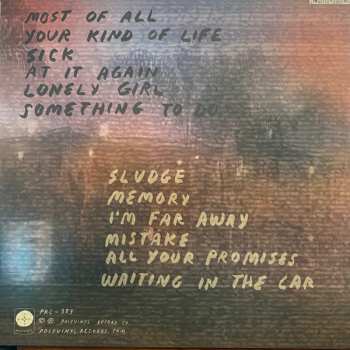 MOST OF ALL
YOUR KIND OF LIFE
SICK
AT IT AGAIN
LONELY GIRL
SOMETHING TO DO
SLUDGE
MEMORY
I'M FAR AWAY
MISTAKE
ALL YOUR PROMISES
WAITING IN THE CAR
PRC-383
℗ © POLYVINYL RECORD CO.
POLYVINYL RECORDS.COM